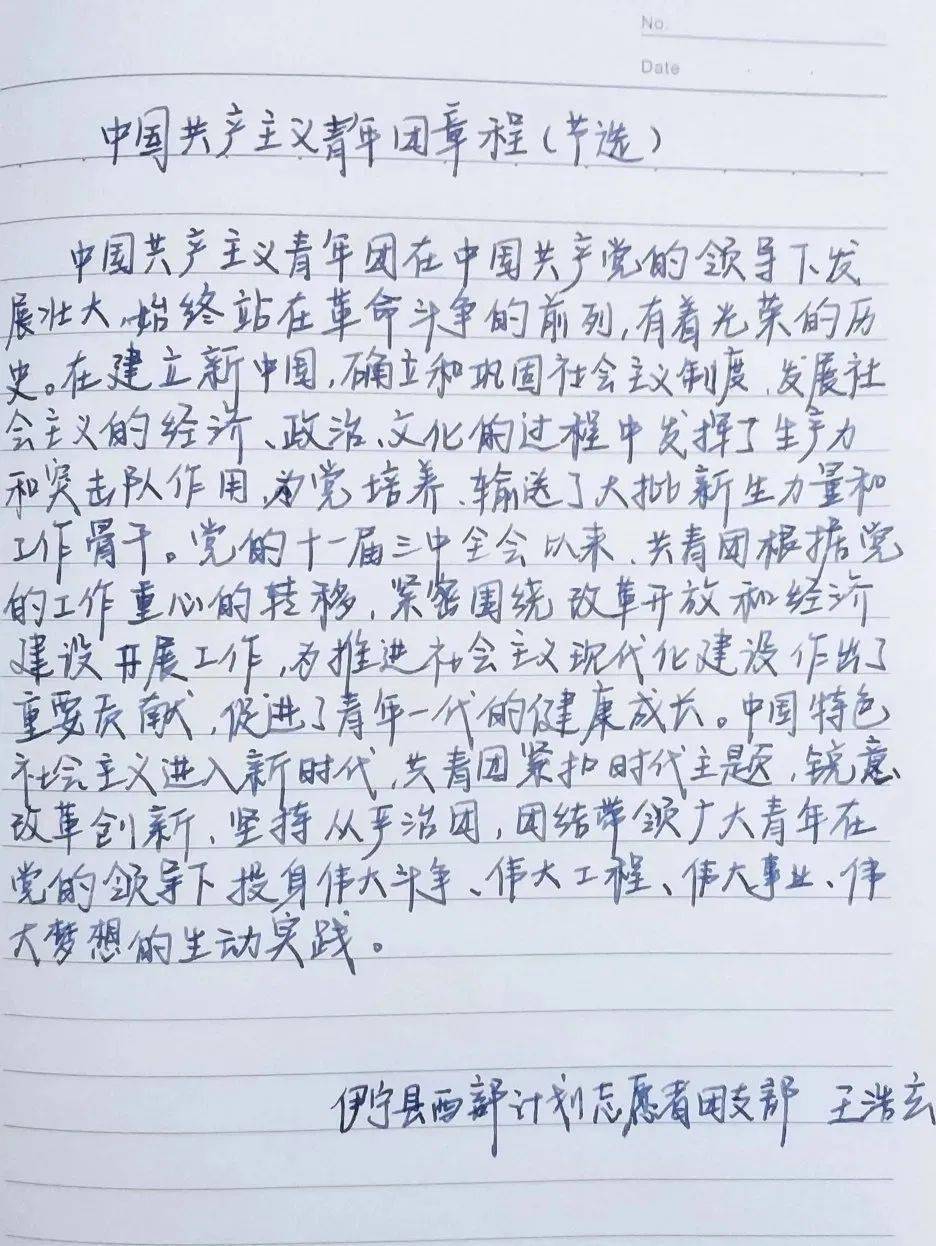 No.
Date
中国共产主义青年团章程(节选)
中国共产主义青年团在中国共产党的领导下发
展壮大,始终站在革命斗争的前列,有着光荣的历
史。在建立新中国,确立和巩固社会主义制度,发展社
会主义的经济、政治、文化的过程中发挥了生产力
和突击队作用,为党培养、输送了大批新生力量和
工作骨干。党的十一届三中全会以来,共青团根据党
的工作重心的转移,紧密围绕改革开放和经济
建设开展工作,为推进社会主义现代化建设作出了
重要贡献,促进了青年一代的健康成长。中国特色
社会主义进入新时代,共青团紧扣时代主题,锐意
改革创新,坚持从严治团,团结带领广大青年在
党的领导下投身伟大斗争、伟大工程、伟大事业、伟
大梦想的生动实践。
伊宁县西部计划志愿者团支部 王浩玄